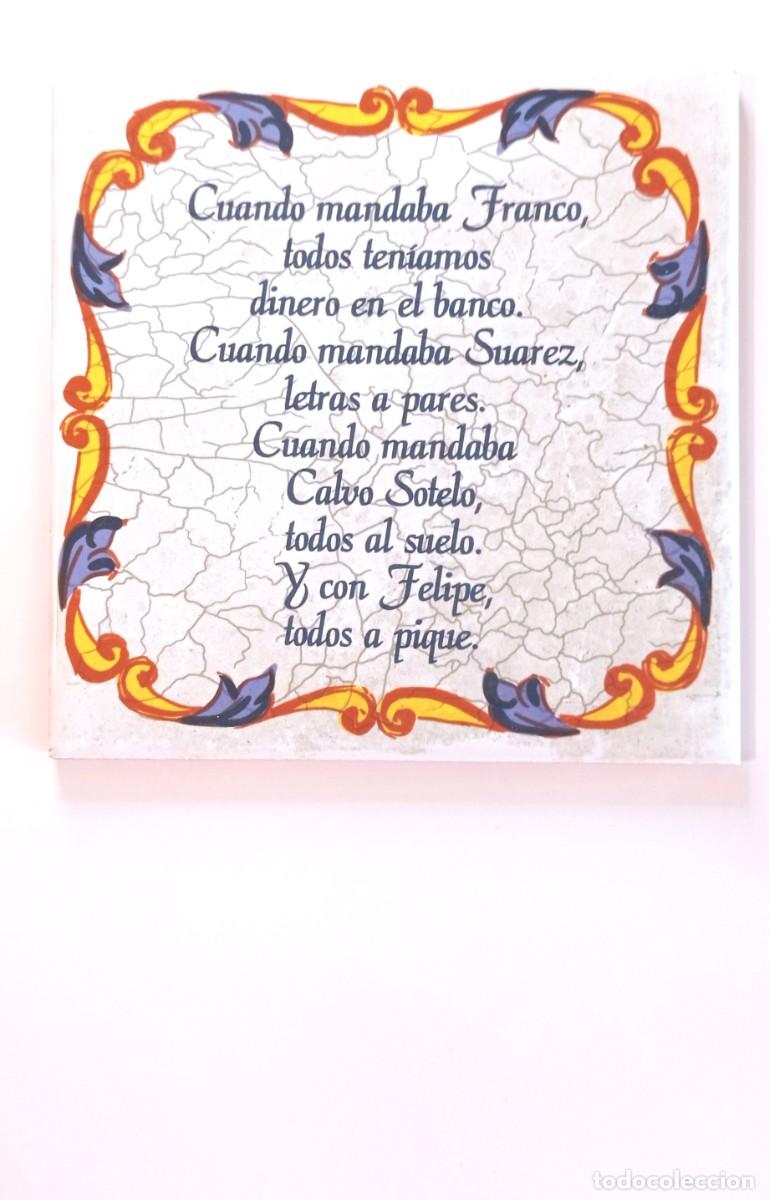 Cuando mandaba Franco,
todos teníamos
dinero en el banco.
Cuando mandaba Suarez,
letras a pares.
Cuando mandaba
Calvo Sotelo,
todos al suelo.
Y con Felipe,
todos a pique.
todocoleccion